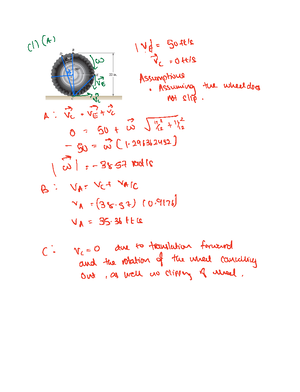 (1) (A)
ω
V_E
V_C
|V_d| = 50 ft/s
V_C = 0 ft/s
Assumptions
• Assuming the wheel does
not slip.
A: V_C = V_E + V_C
0 = 50 + ω
- 50 = ω (1.296362432)
|ω| = - 38.57 rad/s
B: V_A = V_C + V_A/C
V_A = (38.57)
V_A = 95.36 ft/s
C: V_C = 0 due to translation forward
and the rotation of the wheel cancelling
out, as well no slipping of wheel.